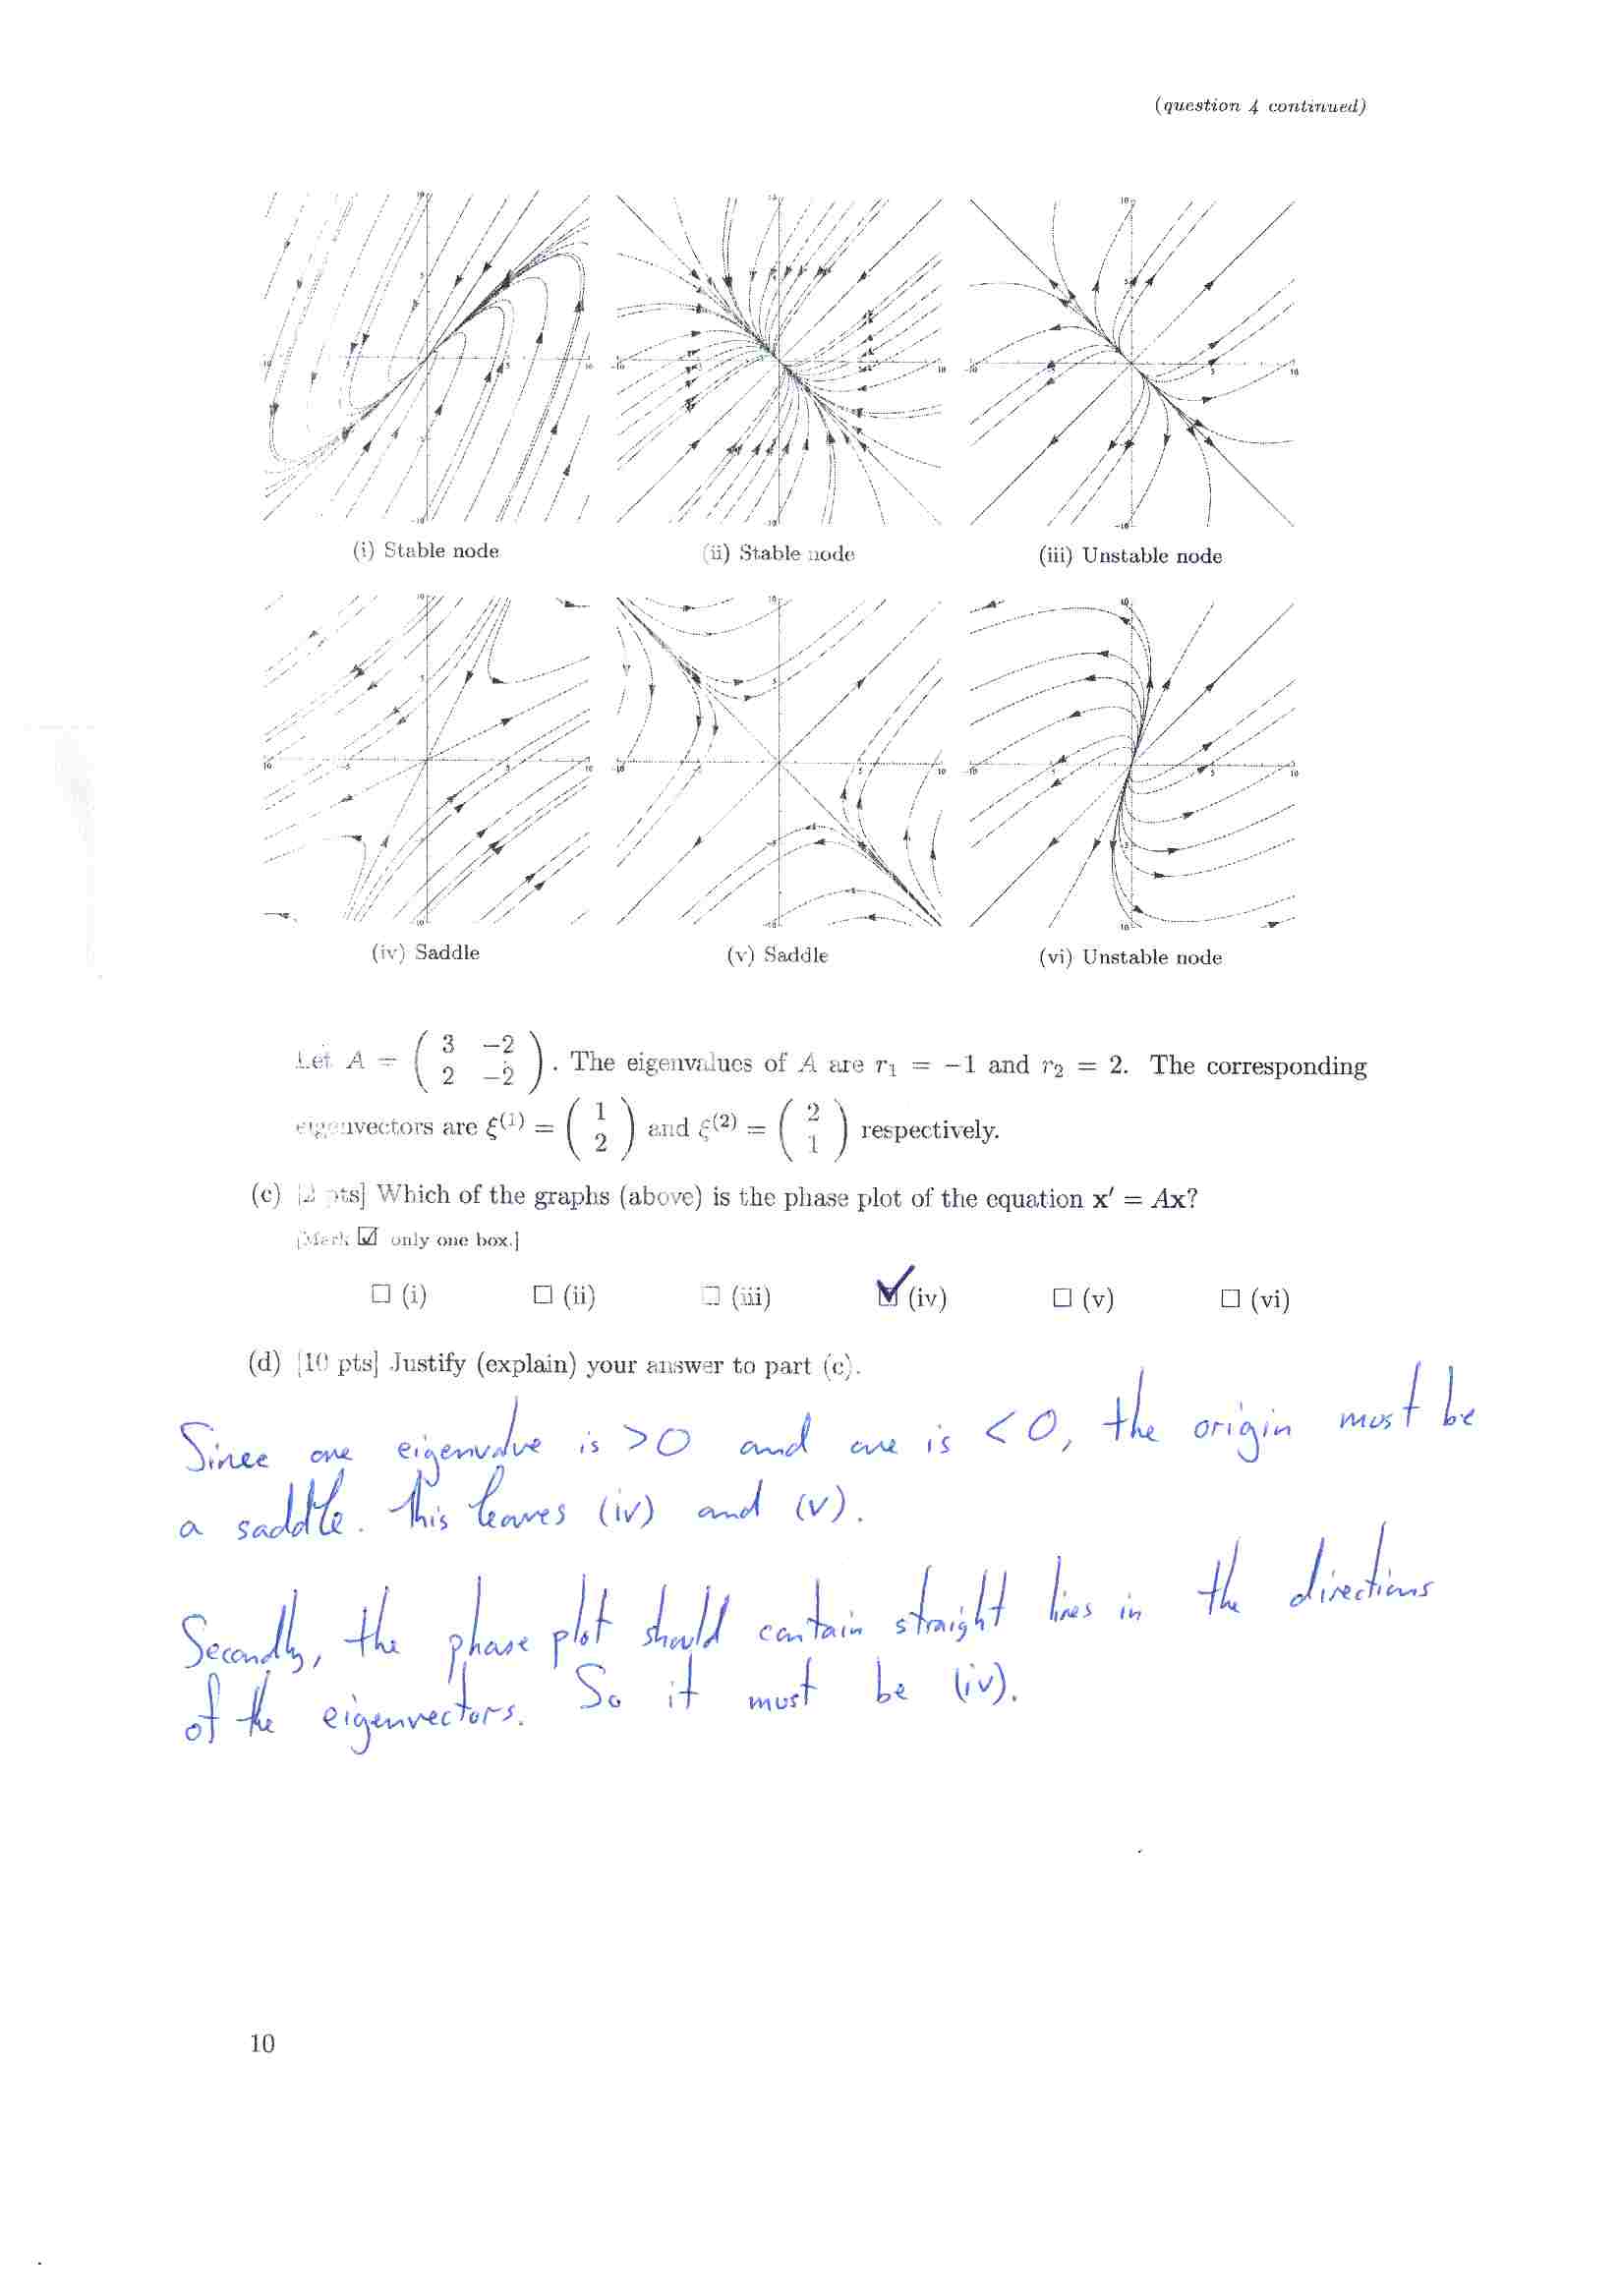 (question 4 continued)
(i) Stable node
(ii) Stable node
(iii) Unstable node
(iv) Saddle
(v) Saddle
(vi) Unstable node
Let A = ( 3 −2 ; 2 −2 ). The eigenvalues of A are r₁ = −1 and r₂ = 2. The corresponding
eigenvectors are ξ⁽¹⁾ = ( 1 ; 2 ) and ξ⁽²⁾ = ( 2 ; 1 ) respectively.
(c) [2 pts] Which of the graphs (above) is the phase plot of the equation x′ = Ax?
[Mark ☑ only one box.]
☐ (i) ☐ (ii) ☐ (iii) ☑ (iv) ☐ (v) ☐ (vi)
(d) [10 pts] Justify (explain) your answer to part (c).
Since one eigenvalue is >0 and one is <0, the origin must be
a saddle. This leaves (iv) and (v).
Secondly, the phase plot should contain straight lines in the directions
of the eigenvectors. So it must be (iv).
10